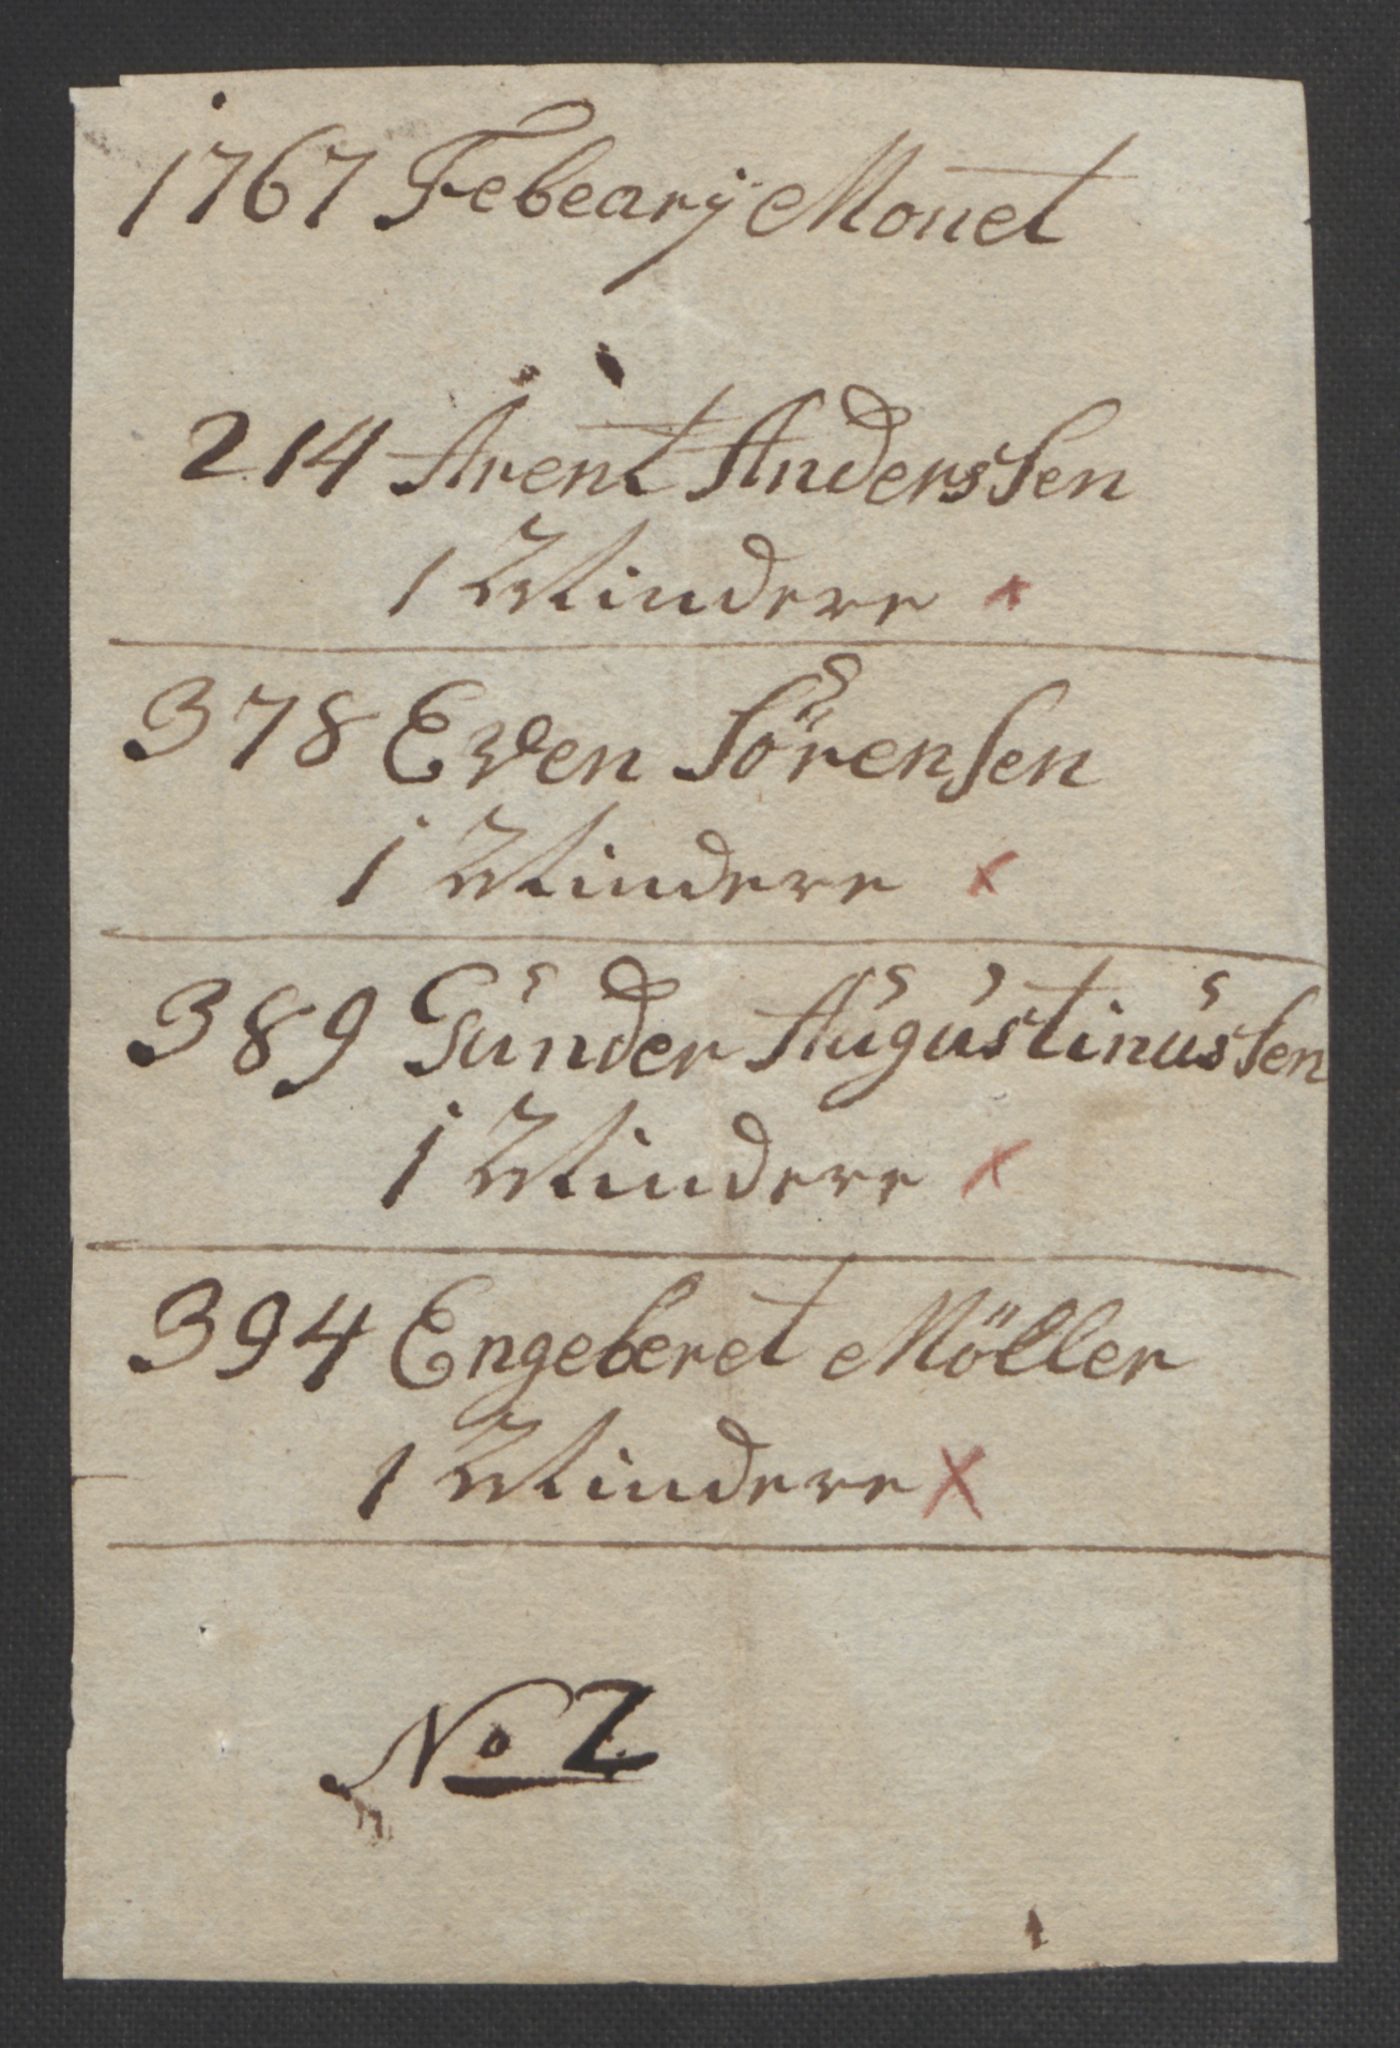 1767 Febeary Monet
214 Arent Anderssen
1 Mindere x
378 Even Sörensen
1 Mindere x
389 Gunder Augustinussen
1 Mindere x
394 Engeberet Möller
1 Mindere x
No 2